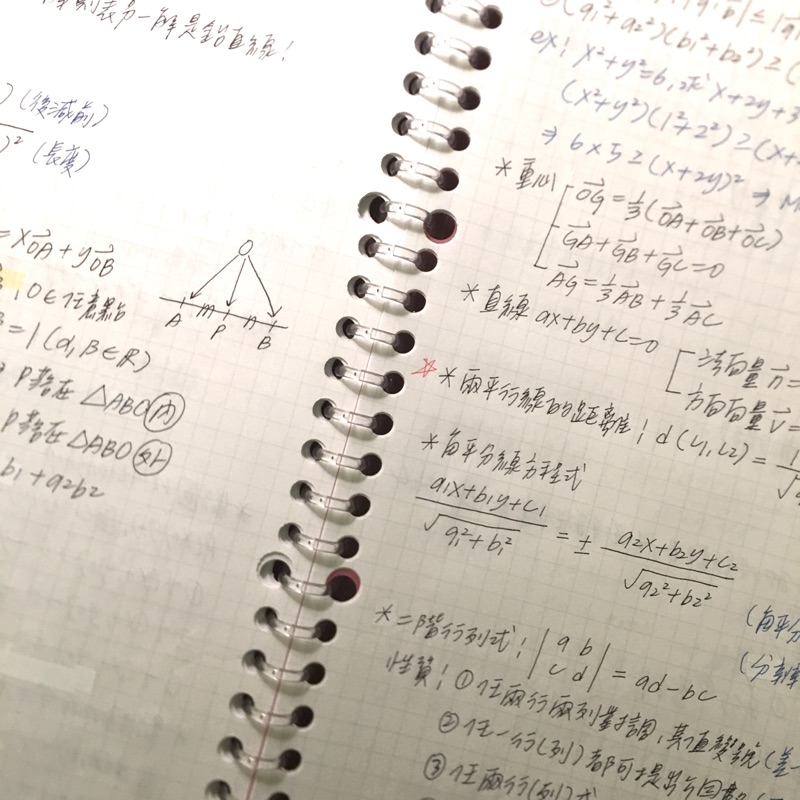 表另一解是鉛直線!
(後減前)
)² (長度)
= xOA + yOB
O∈任意點
= 1 (α, β∈R)
P落在 △ABO 內
P落在 △ABO 外
b1 + a2b2
O
A m P n B
(a1²+a2²)(b1²+b2²) ≥ (
ex: x²+y²=6, 求 x+2y+3
(x²+y²)(1²+2²) ≥ (x+
⇒ 6×5 ≥ (x+2y)² ⇒ M
*重心 OG = 1/3(OA+OB+OC)
GA+GB+GC=0
AG = 1/3 AB + 1/3 AC
*直線 ax+by+c=0
法向量 n =
方向向量 v =
*兩平行線的距離: d(L1, L2) =
*角平分線方程式
a1x+b1y+c1 / √a1²+b1² = ± a2x+b2y+c2 / √a2²+b2²
(角平分
*二階行列式: |a b / c d| = ad-bc
性質: ① 任兩行兩列對調, 其值變號 (差一
② 任一行(列)都可提出公因數
③ 任兩行(列)成